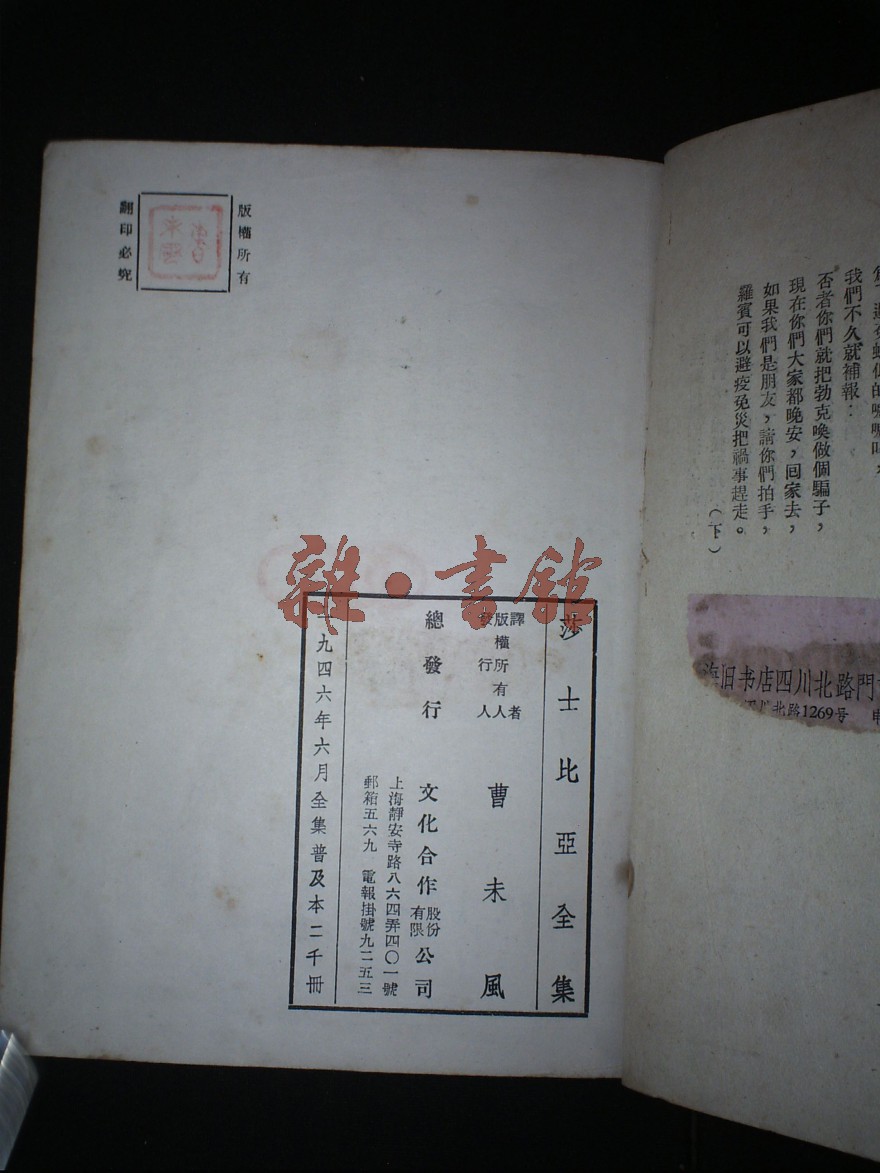 我們不久就補報：
否者你們就把勃克喚做個騙子，
現在你們大家都晚安，囘家去，
如果我們是朋友，請你們拍手，
羅賓可以避疫免災把禍事趕走。
（下）
海旧书店四川北路門
川北路1269号
版權所有
翻印必究
莎士比亞全集
譯者
版權所有人
發行人
曹未風
總發行
文化合作股份有限公司
上海靜安寺路八六四弄四〇一號
郵箱五六九 電報掛號九二五三
一九四六年六月全集普及本二千冊
雜·書館